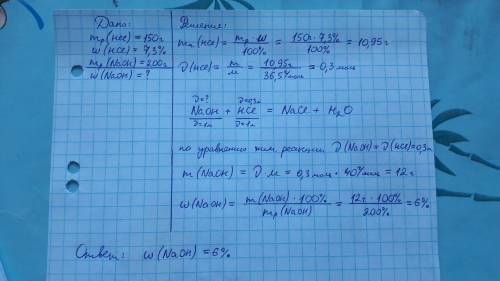 Дано:
mр(HCl) = 150г
w(HCl) = 7,3%
mр(NaOH) = 200г
w(NaOH) = ?
Решение:
mв(HCl) = mр · w / 100% = 150г · 7,3% / 100% = 10,95г
ν(HCl) = m / M = 10,95г / 36,5г/моль = 0,3 моль
ν=? ν=0,3м
NaOH + HCl = NaCl + H2O
ν=1м ν=1м
по уравнению хим. реакции ν(NaOH) = ν(HCl) = 0,3м
m(NaOH) = ν · M = 0,3 моль · 40г/моль = 12г
w(NaOH) = m(NaOH) · 100% / mр(NaOH) = 12г · 100% / 200% = 6%
Ответ: w(NaOH) = 6%